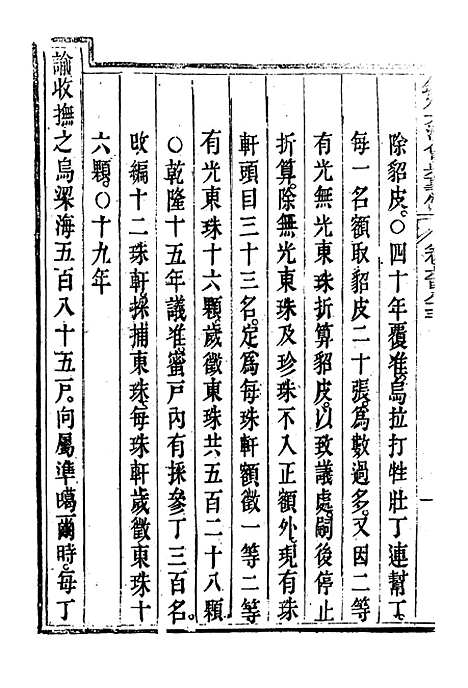 除貂皮。〇四十年覆准。烏拉打牲壯丁連幫丁。
每一名額取貂皮二十張。爲數過多。又因二等
有光無光東珠折算貂皮。以致議處。嗣後停止
折算。除無光東珠及珍珠不入正額外。現有珠
軒頭目三十三名。定爲每珠軒額徵一等二等
有光東珠十六顆。歲徵東珠共五百二十八顆
〇乾隆十五年議准。蜜戶內有採參丁三百名。
改編十二珠軒。採捕東珠。每珠軒歲徵東珠十
六顆。〇十九年
諭收撫之烏梁海五百八十五戶。向屬準噶爾時。每丁